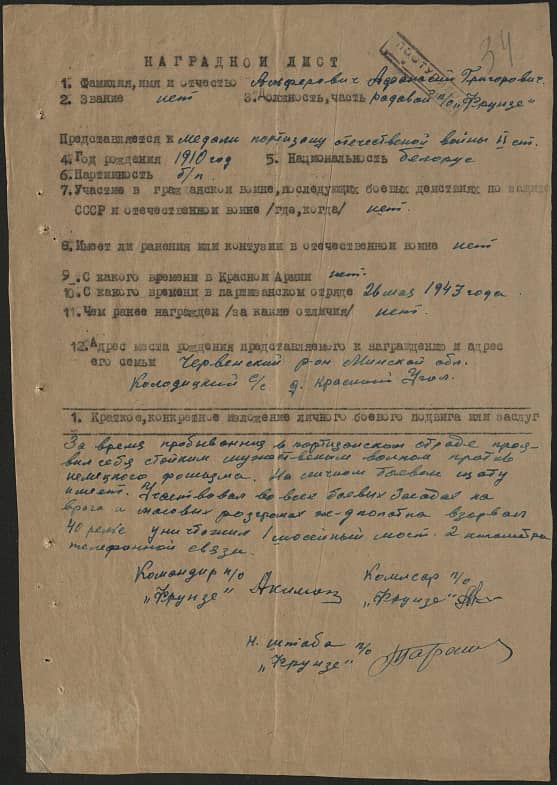 34
НАГРАДНОЙ ЛИСТ
1. Фамилия, имя и отчество Алферович Афанасий Григорович.
2. Звание нет 3. Должность, часть радавой п/о "Фрунзе"
Представляется к медали партизану отечественой войны II ст.
4. Год рождения 1910 год 5. Национальность белорус
6. Партийность б/п.
7. Участие в гражданской войне, последующих боевых действиях по защите
СССР и отечественной войне /где, когда/ нет.
8. Имеет ли ранения или контузии в отечественной войне нет
9. С какого времени в Красной Армии нет.
10. С какого времени в партизанском отряде 26 мая 1943 года.
11. Чем ранее награжден /за какие отличия/ нет.
12. Адрес места рождения представляемого к награждению и адрес
его семьи Червенский р-он Минской обл.
Колодицкий с/с д. Красный Угол.
1. Краткое, конкретное изложение личного боевого подвига или заслуг
За время пробывания в партизанском отраде проя-
вил себя стойким мужественым воином против
немецкого фошизма. На личном боевом щоту
имеет. Участвовал во всех боевых засадах на
врага и масовых розгромах ж-д полотна взорвал
40 рельс уничтожил 1 шоссейный мост. 2 километра
телефонной связи.
Командир п/о Комисар п/о
"Фрунзе" Акимов "Фрунзе"
н. штаба п/о
"Фрунзе"